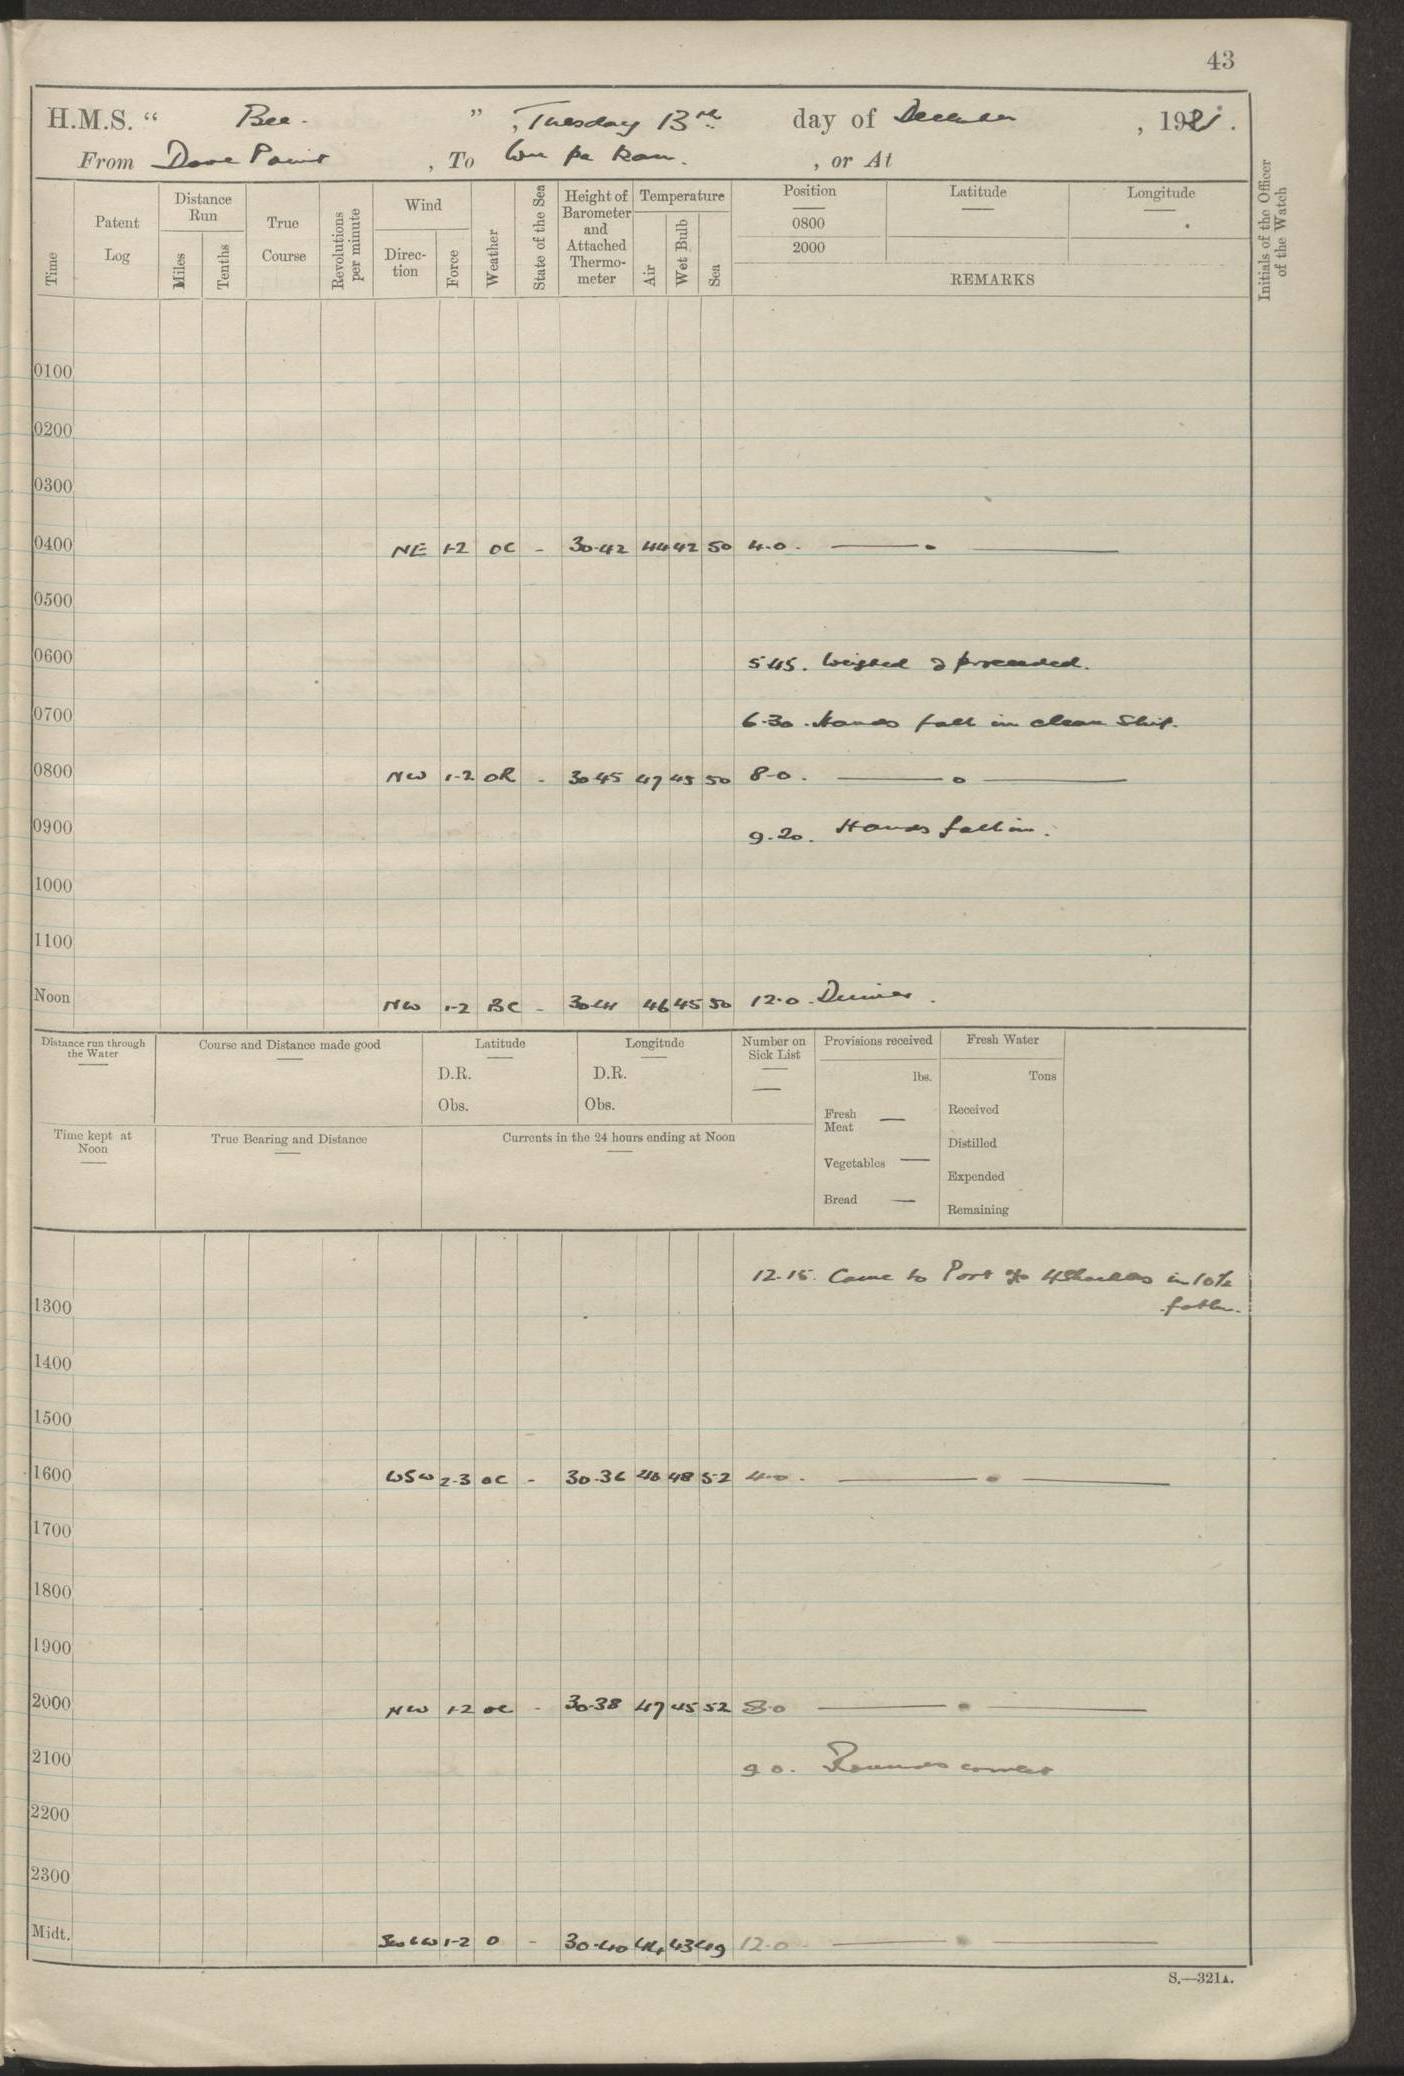 43
H.M.S. “ Bee. ” , Tuesday 13th day of December , 1921.
From Dove Point , To Wu pa Kau. , or At
Time Patent Log Distance Run Miles Tenths True Course Revolutions per minute Wind Direc-tion Force Weather State of the Sea Height of Barometer and Attached Thermo-meter Temperature Air Wet Bulb Sea Position 0800 2000 Latitude Longitude REMARKS Initials of the Officer of the Watch
0100
0200
0300
0400 NE 1-2 OC - 30.42 44 42 50 4.0. —— . ——
0500
0600 5.45. Weighed & proceeded.
0700 6.30. Hands fall in clean Ship.
0800 NW 1-2 OR - 30.45 47 45 50 8.0. —— o ——
0900 9.20. Hands fall in.
1000
1100
Noon NW 1-2 BC - 30.41 46 45 50 12.0. Dinner.
Distance run through the Water Course and Distance made good Latitude Longitude Number on Sick List Provisions received Fresh Water
D.R. D.R. — lbs. Tons
Obs. Obs. Fresh Meat — Received
Time kept at Noon True Bearing and Distance Currents in the 24 hours ending at Noon Distilled
Vegetables — Expended
Bread — Remaining
12.15. Came to Port 4 Shackles in 10½
1300 fathm.
1400
1500
1600 WSW 2-3 OC - 30.36 48 52 4.0. —— . ——
1700
1800
1900
2000 NW 1-2 OC - 30.38 47 45 52 8.0 —— . ——
2100 9.0. Rounds correct
2200
2300
Midt. 1-2 O - 30.40 44 43 49 12.0 —— . ——
S.—321A.